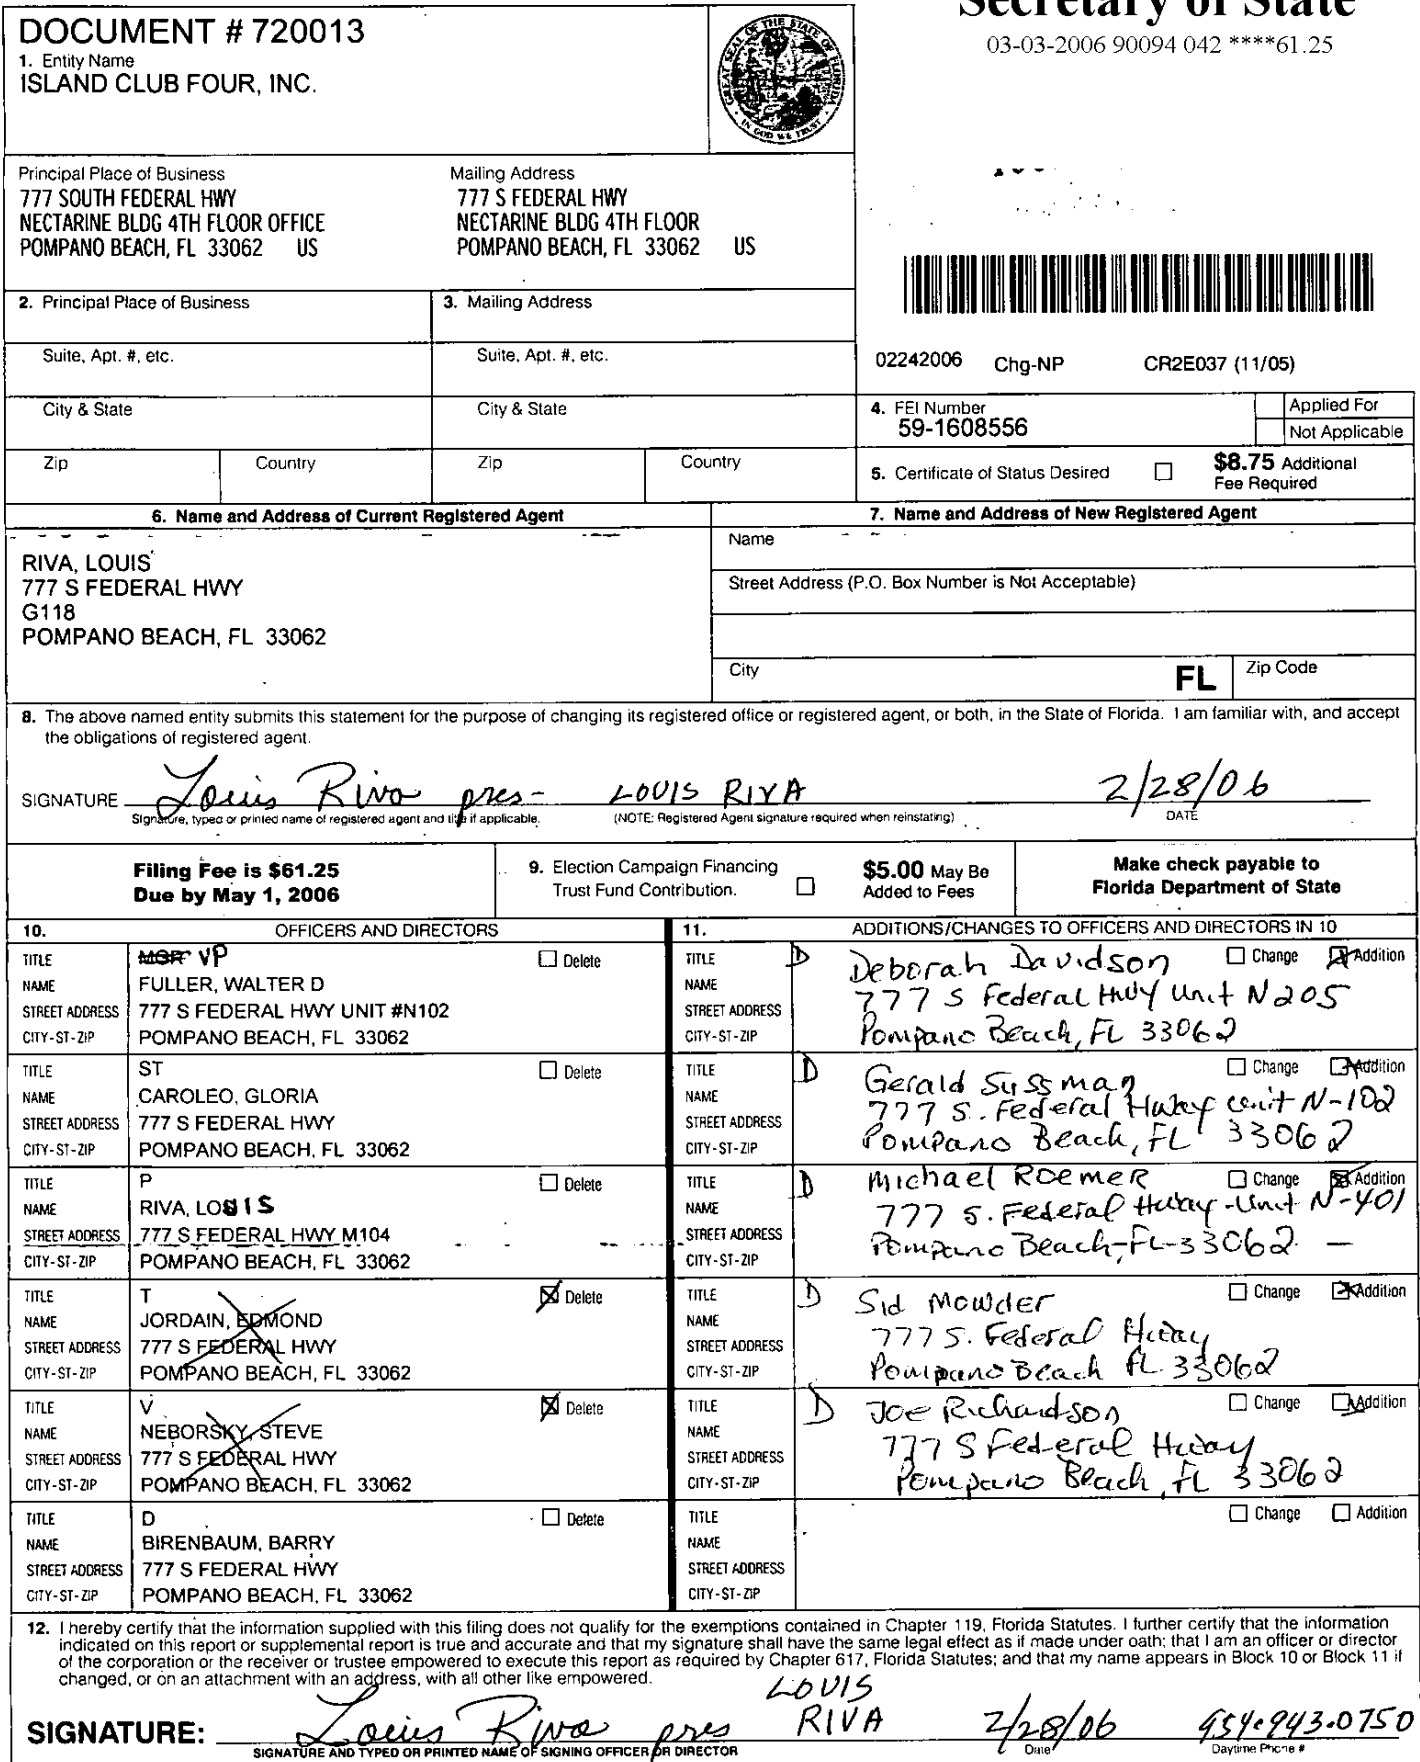 Secretary of State
03-03-2006 90094 042 ****61.25
DOCUMENT # 720013
1. Entity Name
ISLAND CLUB FOUR, INC.
GREAT SEAL OF THE STATE OF FLORIDA
IN GOD WE TRUST
Principal Place of Business
777 SOUTH FEDERAL HWY
NECTARINE BLDG 4TH FLOOR OFFICE
POMPANO BEACH, FL 33062 US
Mailing Address
777 S FEDERAL HWY
NECTARINE BLDG 4TH FLOOR
POMPANO BEACH, FL 33062 US
2. Principal Place of Business
3. Mailing Address
Suite, Apt. #, etc.
Suite, Apt. #, etc.
02242006 Chg-NP CR2E037 (11/05)
City & State
City & State
4. FEI Number
59-1608556
Applied For
Not Applicable
Zip
Country
Zip
Country
5. Certificate of Status Desired
$8.75 Additional
Fee Required
6. Name and Address of Current Registered Agent
7. Name and Address of New Registered Agent
RIVA, LOUIS
777 S FEDERAL HWY
G118
POMPANO BEACH, FL 33062
Name
Street Address (P.O. Box Number is Not Acceptable)
City
FL
Zip Code
8. The above named entity submits this statement for the purpose of changing its registered office or registered agent, or both, in the State of Florida. I am familiar with, and accept
the obligations of registered agent.
SIGNATURE Louis Riva pres- LOUIS RIVA 2/28/06
Signature, typed or printed name of registered agent and title if applicable. (NOTE: Registered Agent signature required when reinstating) DATE
Filing Fee is $61.25
Due by May 1, 2006
9. Election Campaign Financing
Trust Fund Contribution.
$5.00 May Be
Added to Fees
Make check payable to
Florida Department of State
10. OFFICERS AND DIRECTORS
11. ADDITIONS/CHANGES TO OFFICERS AND DIRECTORS IN 10
TITLE MGR VP Delete
NAME FULLER, WALTER D
STREET ADDRESS 777 S FEDERAL HWY UNIT #N102
CITY-ST-ZIP POMPANO BEACH, FL 33062
TITLE D Change Addition
NAME Deborah Davidson
STREET ADDRESS 777 S Federal Hwy Unit N205
CITY-ST-ZIP Pompano Beach, FL 33062
TITLE ST Delete
NAME CAROLEO, GLORIA
STREET ADDRESS 777 S FEDERAL HWY
CITY-ST-ZIP POMPANO BEACH, FL 33062
TITLE D Change Addition
NAME Gerald Sussman
STREET ADDRESS 777 S. Federal Hwy unit N-102
CITY-ST-ZIP Pompano Beach, FL 33062
TITLE P Delete
NAME RIVA, LOUIS
STREET ADDRESS 777 S FEDERAL HWY M104
CITY-ST-ZIP POMPANO BEACH, FL 33062
TITLE D Change Addition
NAME Michael Roemer
STREET ADDRESS 777 S. Federal Hway-Unit N-401
CITY-ST-ZIP Pompano Beach-FL-33062 -
TITLE T Delete
NAME JORDAIN, EDMOND
STREET ADDRESS 777 S FEDERAL HWY
CITY-ST-ZIP POMPANO BEACH, FL 33062
TITLE D Change Addition
NAME Sid Mowder
STREET ADDRESS 777 S. Federal Hway
CITY-ST-ZIP Pompano Beach FL 33062
TITLE V Delete
NAME NEBORSKY, STEVE
STREET ADDRESS 777 S FEDERAL HWY
CITY-ST-ZIP POMPANO BEACH, FL 33062
TITLE D Change Addition
NAME Joe Richardson
STREET ADDRESS 777 S Federal Hway
CITY-ST-ZIP Pompano Beach, FL 33062
TITLE D Delete
NAME BIRENBAUM, BARRY
STREET ADDRESS 777 S FEDERAL HWY
CITY-ST-ZIP POMPANO BEACH, FL 33062
TITLE Change Addition
NAME
STREET ADDRESS
CITY-ST-ZIP
12. I hereby certify that the information supplied with this filing does not qualify for the exemptions contained in Chapter 119, Florida Statutes. I further certify that the information
indicated on this report or supplemental report is true and accurate and that my signature shall have the same legal effect as if made under oath; that I am an officer or director
of the corporation or the receiver or trustee empowered to execute this report as required by Chapter 617, Florida Statutes; and that my name appears in Block 10 or Block 11 if
changed, or on an attachment with an address, with all other like empowered.
LOUIS
SIGNATURE: Louis Riva pres RIVA 2/28/06 954-943-0750
SIGNATURE AND TYPED OR PRINTED NAME OF SIGNING OFFICER OR DIRECTOR Date Daytime Phone #